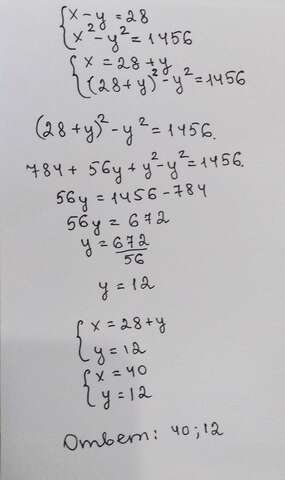 x - y = 28
x² - y² = 1456
x = 28 + y
(28 + y)² - y² = 1456
(28 + y)² - y² = 1456.
784 + 56y + y² - y² = 1456.
56y = 1456 - 784
56y = 672
y = 672/56
y = 12
x = 28 + y
y = 12
x = 40
y = 12
Ответ: 40; 12